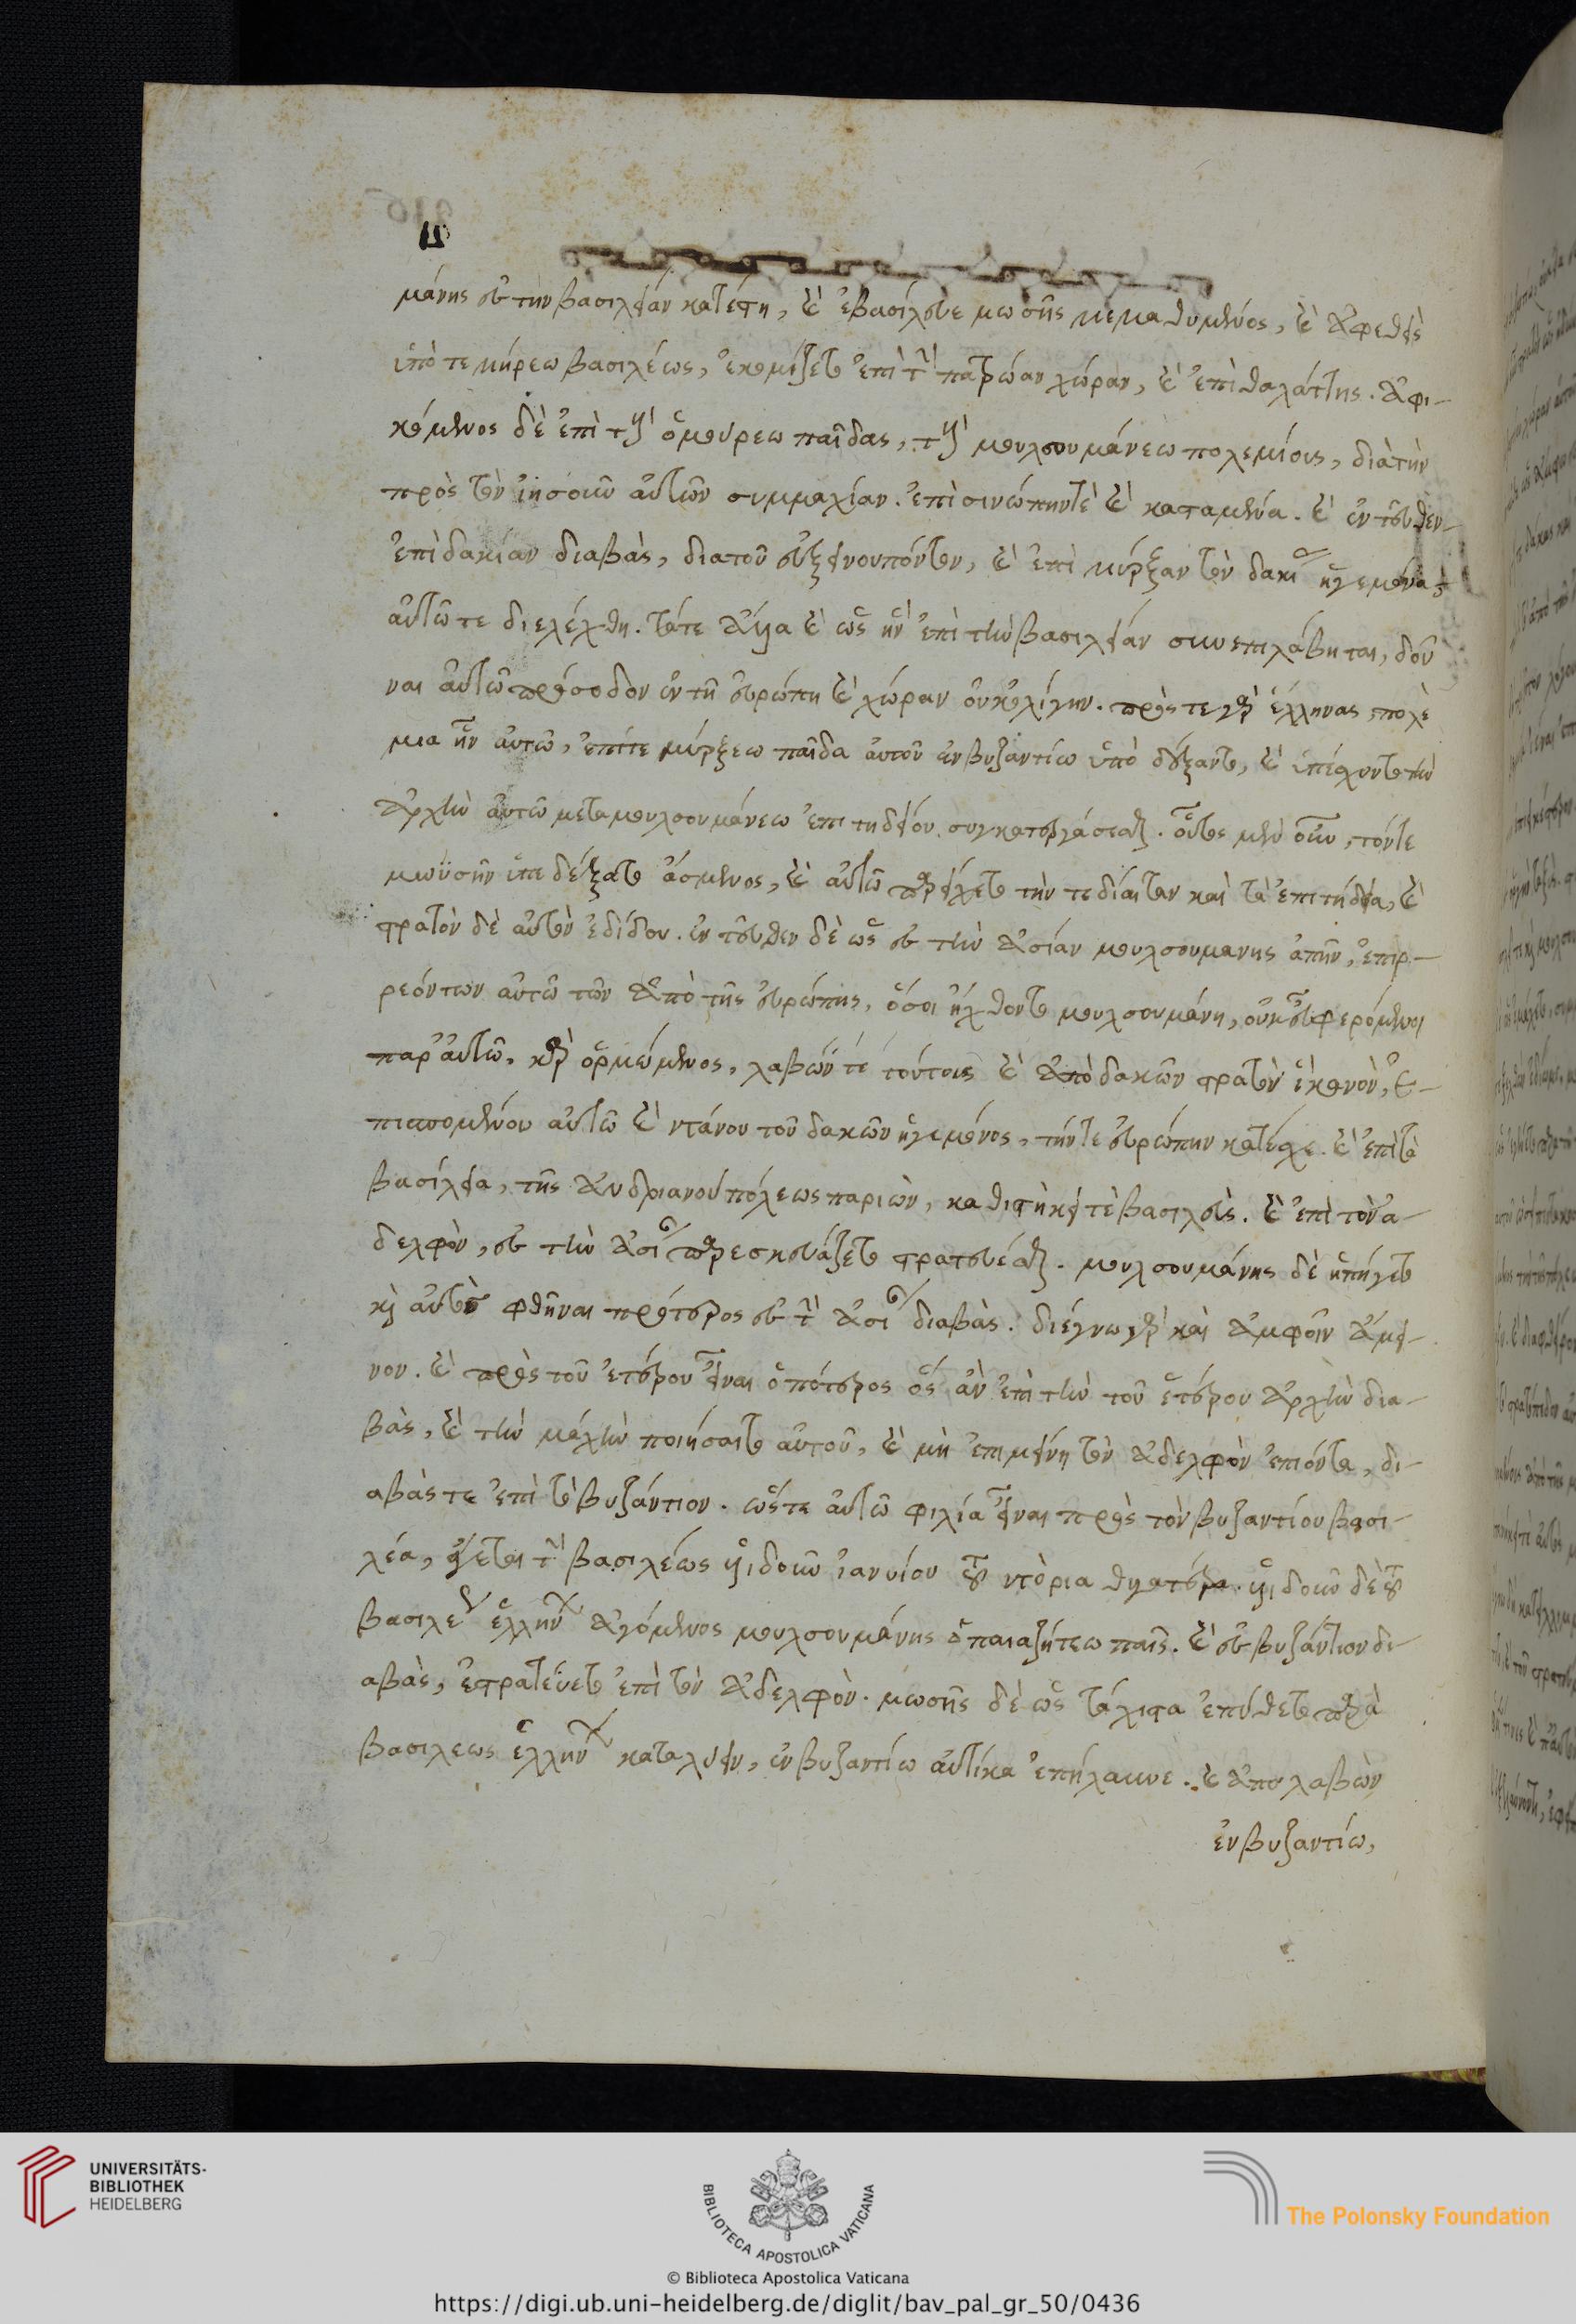 μάνης εἰς τὴν βασιλείαν κατέστη, καὶ ἐβασίλευε μωσῆς κεκαθυμένος, καὶ ἀφεθεὶς
ὑπό τε μήρεω βασιλέως, ἐκομίζετο ἐπὶ τὴν πατρώαν χώραν, καὶ ἐπὶ θαλάττης. ἀφι-
κόμενος δὲ ἐπὶ τοὺς ὁμούρεω παῖδας, τοὺς μουλσουμάνεω πολεμίους, διὰ τὴν
πρὸς τὸν ἰησοῦν αὐτῶν συμμαχίαν. ἐπὶ σινώπην τὲ καὶ κασταμένα. καὶ ἐντεῦθεν
ἐπὶ δακίαν διαβὰς, διὰ τοῦ εὐξείνου πόντου, καὶ ἐπὶ μύρξαν τὸν δακίας ἡγεμόνα,
αὐτῶ τε διελέχθη. τά τε ἄλλα καὶ ὡς ἢν ἐπὶ τὴν βασιλείαν συνεπιλάβηται, δοῦ
ναι αὐτῶ πρόσοδον ἐν τῆ εὐρώπη καὶ χώραν οὐκ ὀλίγην. πρός τε γὰρ ἕλληνας πολέ
μια ἦν αὐτῶ, ἐπί τε μύρξεω παῖδα αὐτοῦ ἐν βυζαντίω ὑποδέξαντο, καὶ ὑπέσχοντο τὴν
ἀρχὴν αὐτῶ μετὰ μουλσουμάνεω ἐπιτηδείου συγκατεργάσεσθαι. οὗτος μὲν οὖν, τόν τε
μωϋσῆν ὑπεδέξατο ἄσμενος, καὶ αὐτῶ παρείχετο τήν τε δίαιταν καὶ τὰ ἐπιτήδεια, καὶ
στρατὸν δὲ αὐτὸν ἐδίδου. ἐντεῦθεν δὲ ὡς εἰς τὴν ἀσίαν μουλσουμανης ἀπῆν, ἐπιρ-
ρεόντων αὐτῶ τῶν ἀπὸ τῆς εὐρώπης, ὅσοι ἤχθοντο μουλσουμάνη, οὐκ εὖ φερόμενοι
παρ' αὐτῶ. καὶ ὁρμώμενος, λαβών τε τούτους καὶ ἀπὸ δακῶν στρατὸν ἱκανὸν, ἐ-
πισπομένου αὐτῶ καὶ ντάνου τοῦ δακῶν ἡγεμόνος, τήν τε εὐρώπην κατέσχε. καὶ ἐπὶ τὰ
βασίλεια, τῆς ἀνδριανουπόλεως παριὼν, καθιστήκει τὲ βασιλεὺς. καὶ ἐπὶ τὸν ἀ-
δελφὸν, εἰς τὴν ἀσίαν παρεσκευάζετο στρατεύεσθαι. μουλσουμάνης δὲ ἠπήγετο
καὶ αὐτὸς φθῆναι πρότερος εἰς τὴν ἀσίαν διαβὰς. διέγνω γὰρ καὶ ἀμφοῖν ἄμει-
νον. καὶ πρὸς τοῦ ἑτέρου εἶναι ὁπότερος ὃς ἂν ἐπὶ τὴν τοῦ ἑτέρου ἀρχὴν δια-
βὰς, καὶ τὴν μάχην ποιήσαιτο αὐτοῦ, καὶ μὴ ἐπιμείνη τὸν ἀδελφὸν ἐπιόντα, δι-
αβάς τε ἐπὶ τὸ βυζάντιον. ὥστε αὐτῶ φιλία εἶναι πρὸς τὸν βυζαντίου βασι-
λέα, ἄγεται τὴν βασιλέως
βασιλέως ἑλλήνων ἀγόμενος μουλσουμάνης ὁ παιαζήτεω παῖς. καὶ εἰς βυζάντιον δι-
αβὰς, ἐστρατεύετο ἐπὶ τὸν ἀδελφὸν. μωσῆς δὲ ὡς τάχιστα ἐπύθετο παρὰ
βασιλεως ἑλλήνων καταλύειν, ἐν βυζαντίω αὐτίκα ἐπήλαυνε. καὶ ἀπολαβὼν
ἐν βυζαντίω,
UNIVERSITÄTS-
BIBLIOTHEK
HEIDELBERG
BIBLIOTECA APOSTOLICA VATICANA
The Polonsky Foundation
© Biblioteca Apostolica Vaticana
https://digi.ub.uni-heidelberg.de/diglit/bav_pal_gr_50/0436